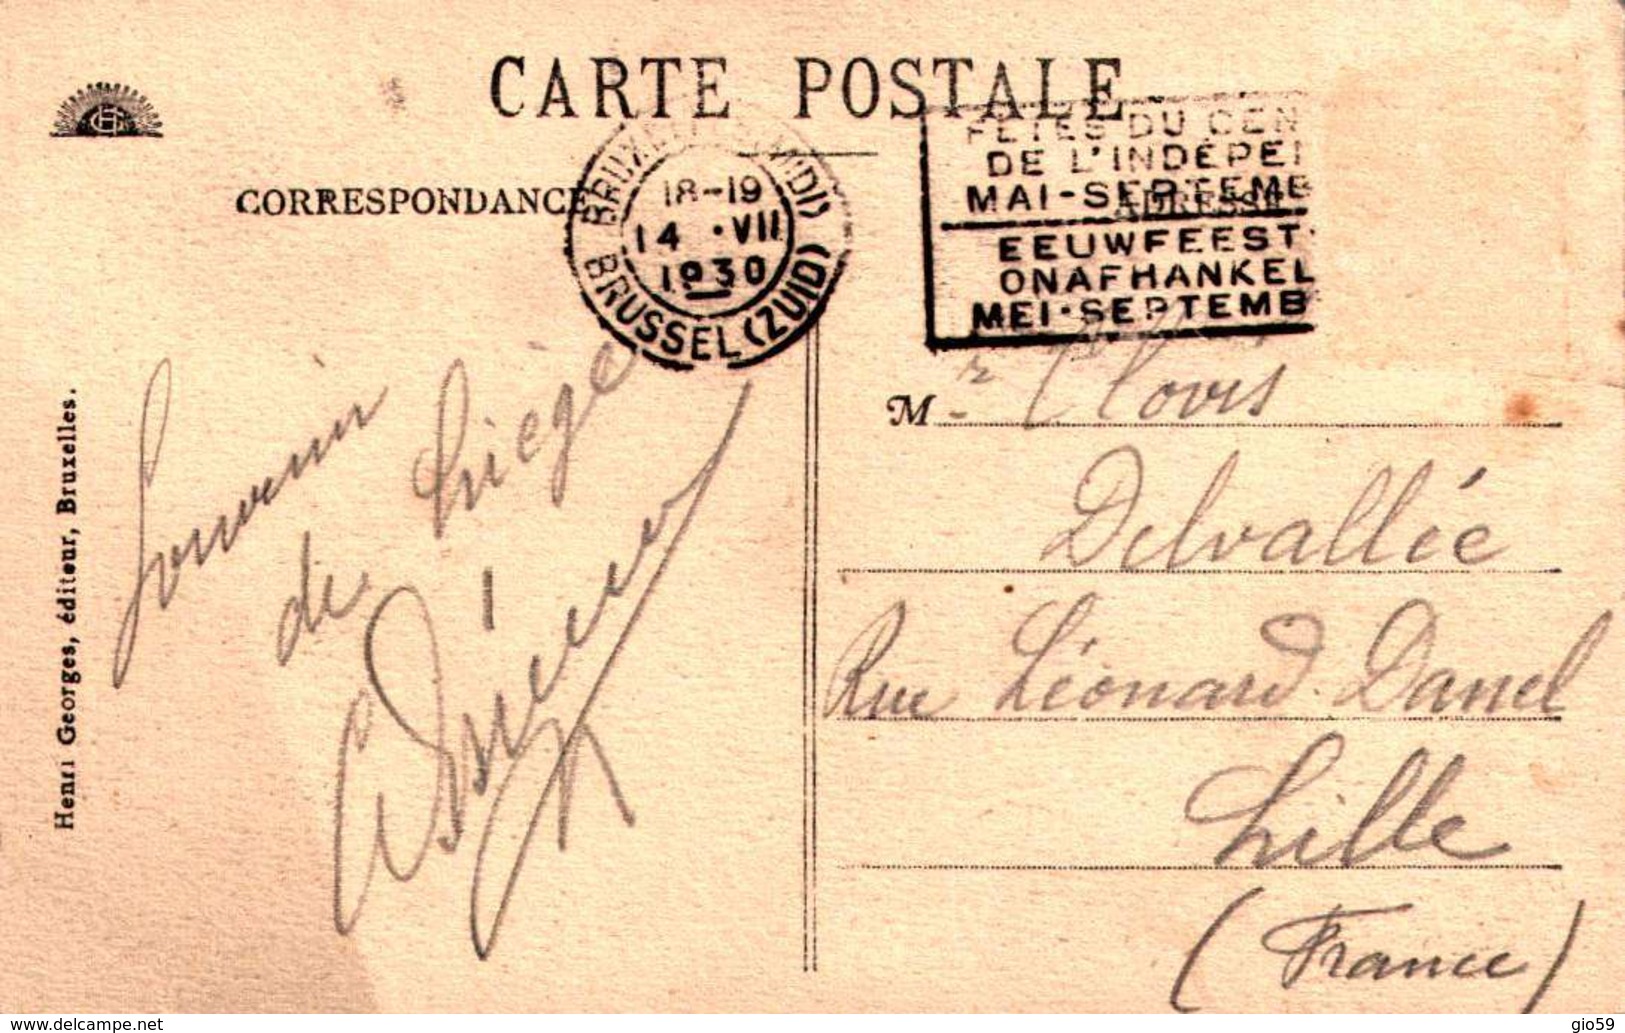 CARTE POSTALE
CORRESPONDANCE
BRUXELLES (MIDI)
18-19
14 · VII
1930
BRUSSEL (ZUID)
FÊTES DU CEN
DE L'INDÉPEN
MAI-SEPTEMB
ADRESSE
EEUWFEEST
ONAFHANKEL
MEI-SEPTEMB
Henri Georges, éditeur, Bruxelles.
Souvenir
de Liège
Mr Clovis
Delvallée
Rue Léonard Danel
Lille
(France)
www.delcampe.net
gio59